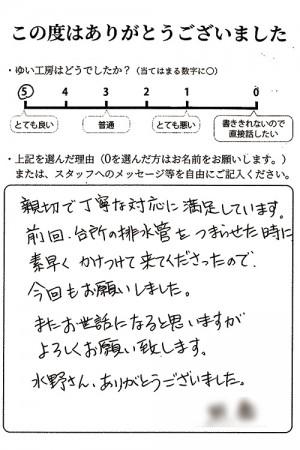 この度はありがとうございました
・ゆい工房はどうでしたか？（当てはまる数字に〇）
5 4 3 2 1 0
とても良い 普通 とても悪い 書ききれないので直接話したい
・上記を選んだ理由（0を選んだ方はお名前をお願いします。）
または、スタッフへのメッセージ等を自由にご記入ください。
親切で丁寧な対応に満足しています。
前回、台所の排水管をつまらせた時に
素早くかけつけて来てくださったので、
今回もお願いしました。
またお世話になると思いますが
よろしくお願い致します。
水野さん、ありがとうございました。